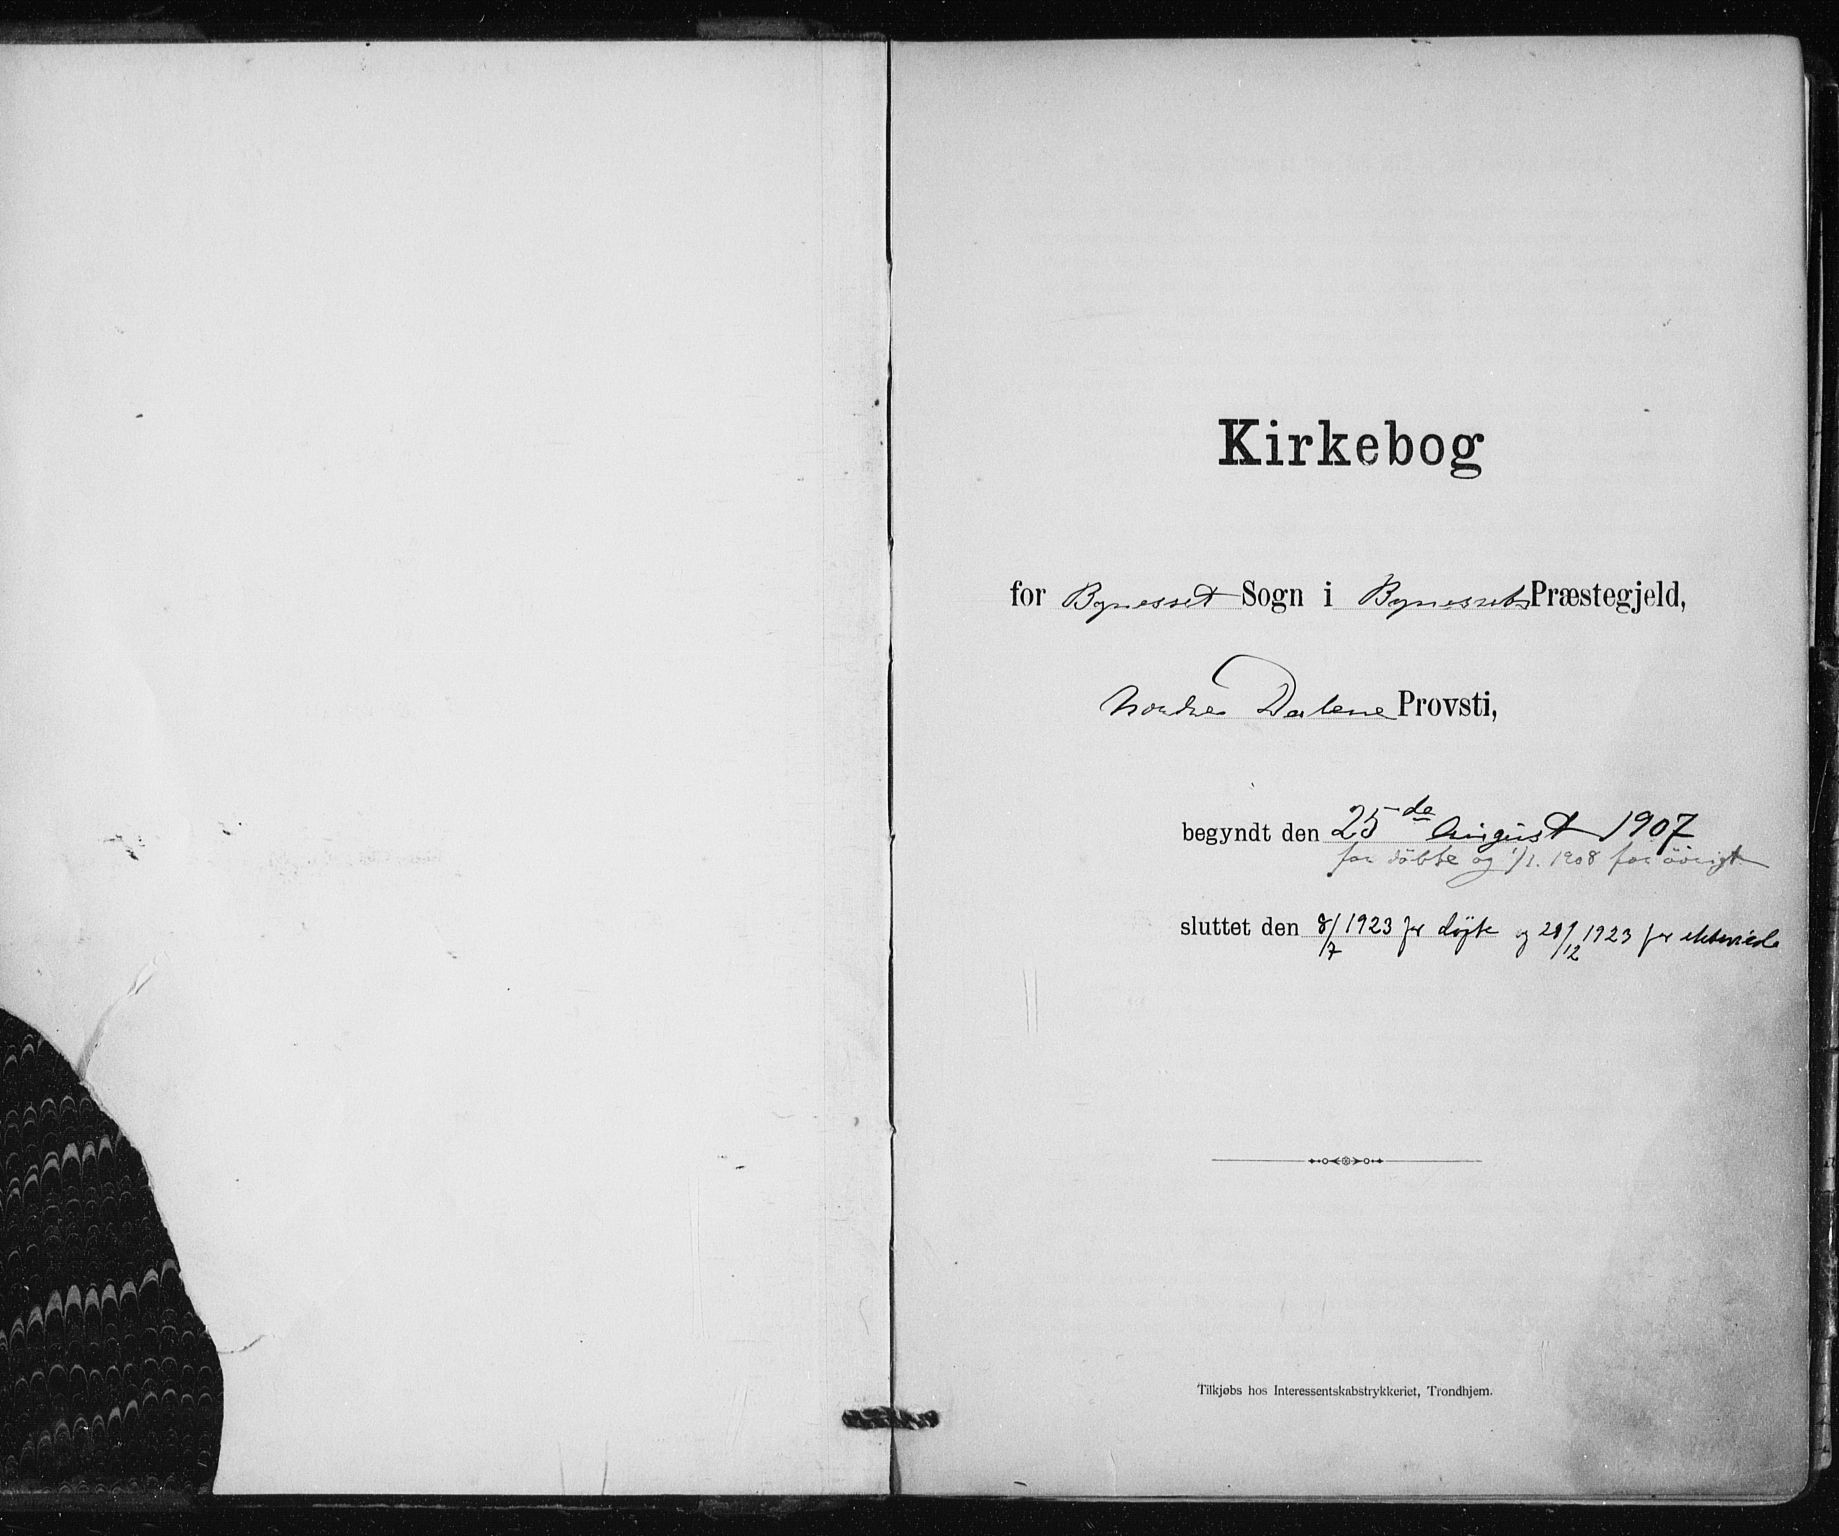 Kirkebog
for Bynesset Sogn i Bynessets Præstegjeld,
Nordre Dalene Provsti,
begyndt den 25de August 1907
for döbte og 1/1. 1908 for övrigt
sluttet den 8/7 1923 for døpte og 28/12 1923 for ekteviede
Tilkjøbs hos Interessentskabstrykkeriet, Trondhjem.